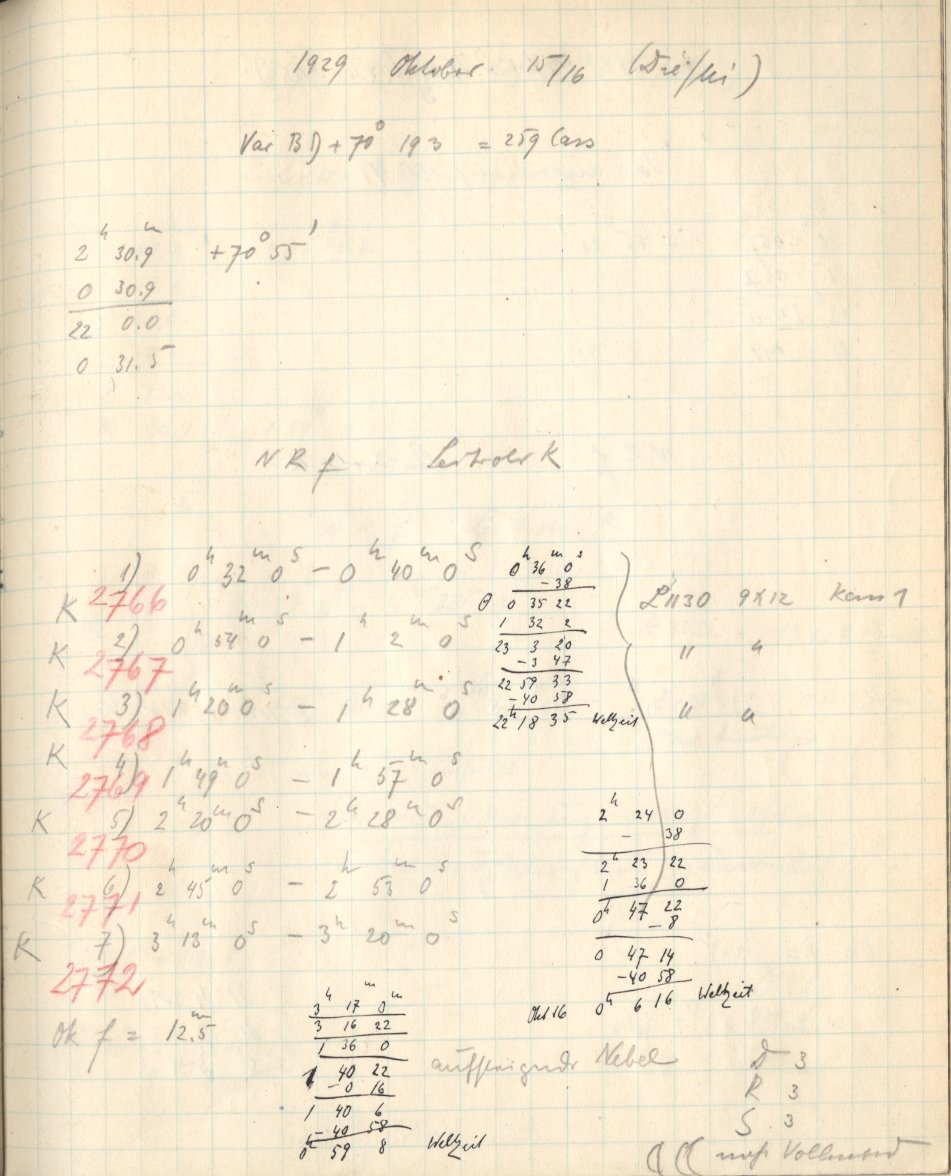 1929 Oktober 15/16 (Die/Mi)
Var BD + 70° 193 = 259 Cass
2ʰ 30.9ᵐ +70° 55'
0 30.9
22 0.0
0 31.5
N R f
K 2766 1) 0ʰ 32ᵐ 0ˢ – 0ʰ 40ᵐ 0ˢ
K 2767 2) 0ʰ 54ᵐ 0ˢ – 1ʰ 2ᵐ 0ˢ
K 2768 3) 1ʰ 20ᵐ 0ˢ – 1ʰ 28ᵐ 0ˢ
K 2769 4) 1ʰ 49ᵐ 0ˢ – 1ʰ 57ᵐ 0ˢ
K 2770 5) 2ʰ 20ᵐ 0ˢ – 2ʰ 28ᵐ 0ˢ
K 2771 6) 2ʰ 45ᵐ 0ˢ – 2ʰ 53ᵐ 0ˢ
K 2772 7) 3ʰ 13ᵐ 0ˢ – 3ʰ 20ᵐ 0ˢ
0ʰ 36ᵐ 0ˢ
–38
θ 0 35 22
1 32 2
23 3 20
–3 47
22 59 33
–40 58
22ʰ 18 35 Weltzeit
9x12
" "
" "
2ʰ 24 0
– 38
2ʰ 23 22
1 36 0
0ʰ 47 22
–8
0 47 14
–40 58
Okt 16 0ʰ 6 16 Weltzeit
Ok f = 12.5ᵐ
3ʰ 17ᵐ 0ᵐ
3 16 22
1 36 0
1 40 22
–0 16
1 40 6
–40 58
0ʰ 59 8 Weltzeit
aufsteigender Nebel
D 3
R 3
S 3
Vollmond